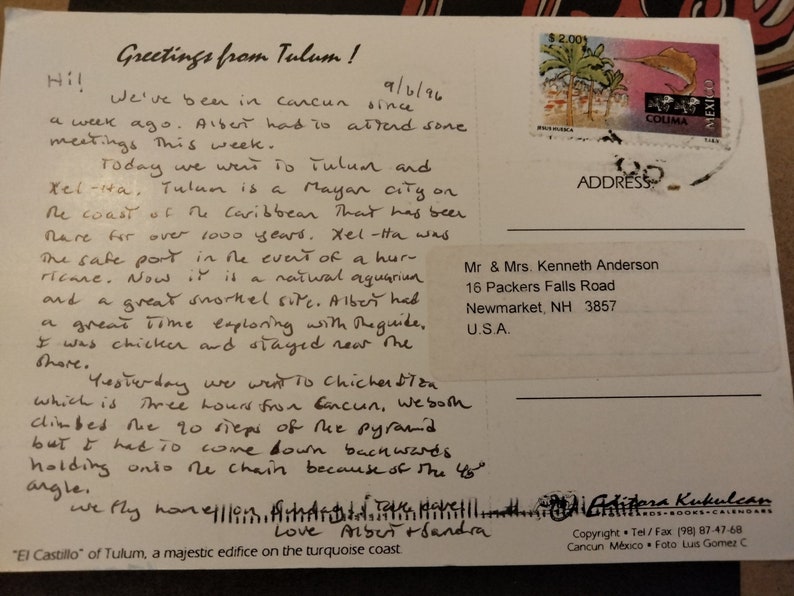 Greetings from Tulum !
Hi!
9/6/96
We've been in Cancun since
a week ago. Albert had to attend some
meetings this week.
Today we went to Tulum and
Xel-Ha. Tulum is a Mayan city on
the coast of the Caribbean that has been
there for over 1000 years. Xel-Ha was
the safe port in the event of a hur-
ricane. Now it is a natural aquarium
and a great snorkel site. Albert had
a great time exploring with the guide.
I was chicken and stayed near the
shore.
Yesterday we went to Chichen Itza
which is three hours from Cancun. We both
climbed the 90 steps of the pyramid
but I had to come down backwards
holding onto the chain because of the 45°
angle.
We fly home on Sunday. Take care
Love Albert + Sandra
"El Castillo" of Tulum, a majestic edifice on the turquoise coast.
$ 2.00
MEXICO
COLIMA
JESUS HUESCA
ADDRESS:
Mr & Mrs. Kenneth Anderson
16 Packers Falls Road
Newmarket, NH 3857
U.S.A.
Editora Kukulcan
POSTCARDS • BOOKS • CALENDARS
Copyright • Tel / Fax (98) 87-47-68
Cancun México • Foto Luis Gomez C